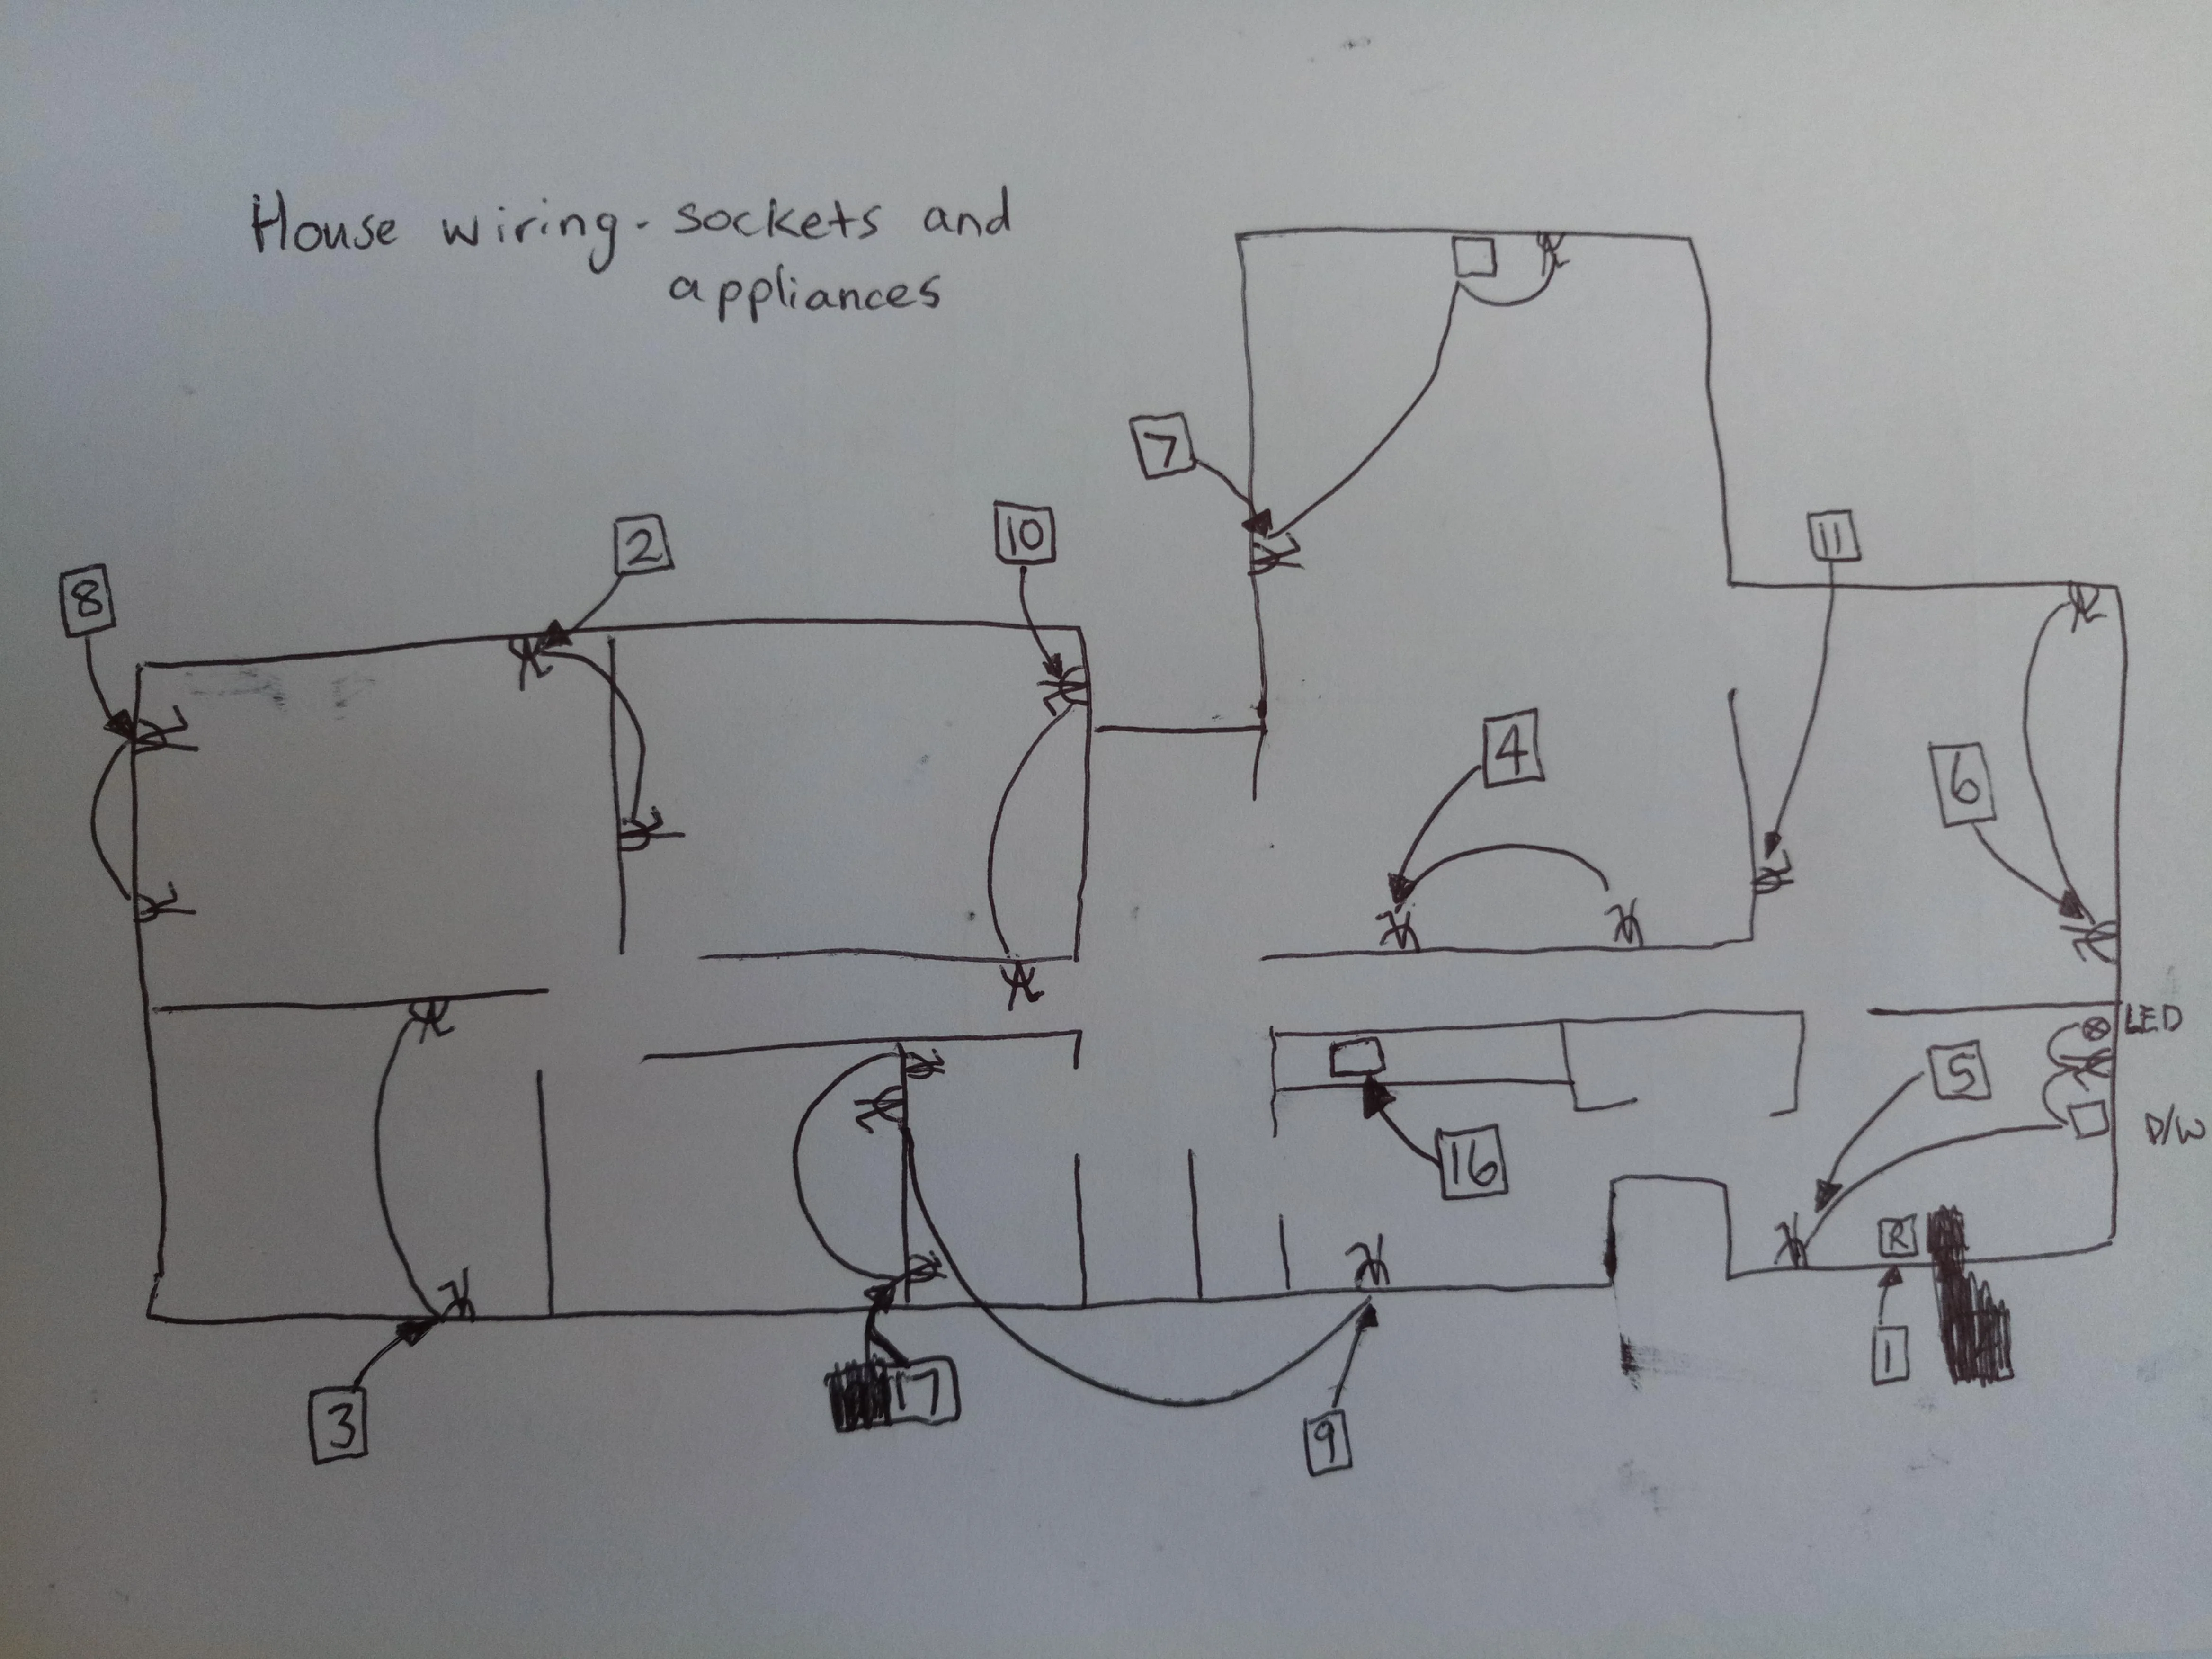 House wiring - sockets and
appliances
7
10
2
11
8
4
6
LED
5
D/W
16
R
1
17
3
9